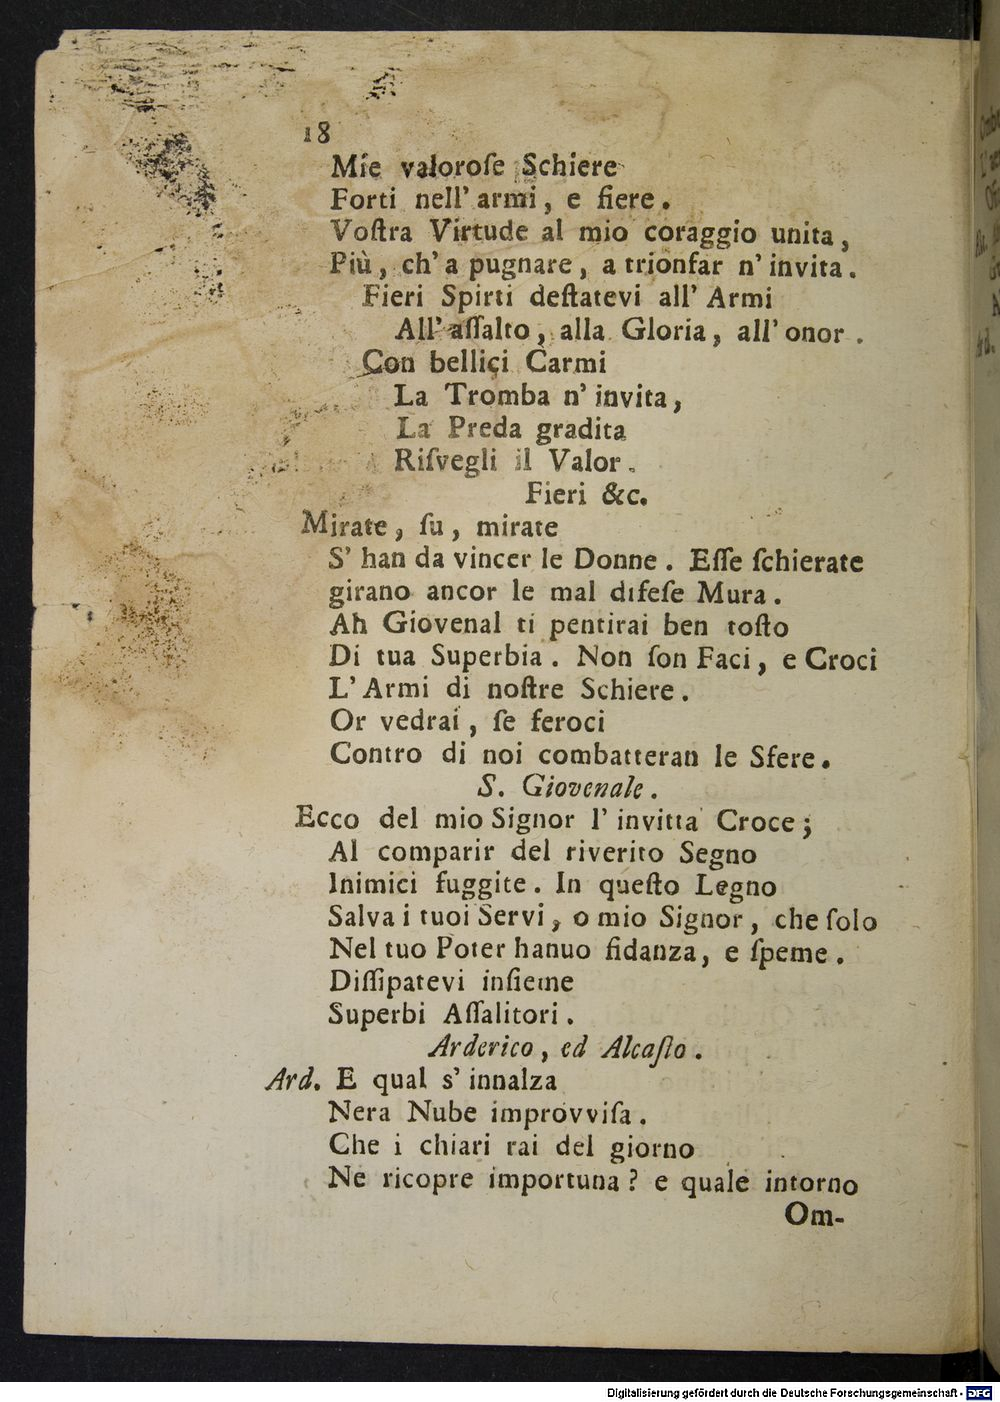 18
Mie valoroſe Schiere
Forti nell' armi, e fiere.
Voſtra Virtude al mio coraggio unita,
Più, ch' a pugnare, a trionfar n' invita.
Fieri Spirti deſtatevi all' Armi
All' aſſalto, alla Gloria, all' onor.
Con bellici Carmi
La Tromba n' invita,
La Preda gradita
Riſvegli il Valor.
Fieri &c.
Mirate, ſu, mirate
S' han da vincer le Donne. Eſſe ſchierate
girano ancor le mal difeſe Mura.
Ah Giovenal ti pentirai ben toſto
Di tua Superbia. Non ſon Faci, e Croci
L' Armi di noſtre Schiere.
Or vedrai, ſe feroci
Contro di noi combatteran le Sfere.
S. Giovenale.
Ecco del mio Signor l' invitta Croce;
Al comparir del riverito Segno
Inimici fuggite. In queſto Legno
Salva i tuoi Servi, o mio Signor, che ſolo
Nel tuo Poter hanuo fidanza, e ſpeme.
Diſſipatevi inſieme
Superbi Aſſalitori.
Arderico, ed Alcaſto.
Ard. E qual s' innalza
Nera Nube improvviſa.
Che i chiari rai del giorno
Ne ricopre importuna? e quale intorno
Om-
Digitalisierung gefördert durch die Deutsche Forschungsgemeinschaft - DFG